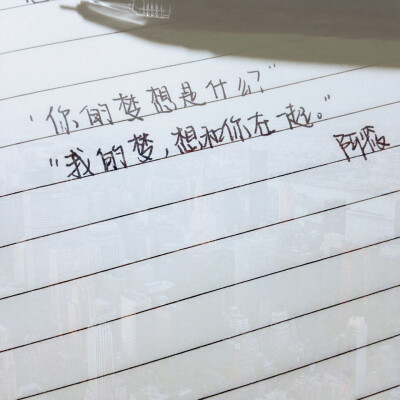 "你的梦想是什么"
"我的梦,想和你在一起。"
阿